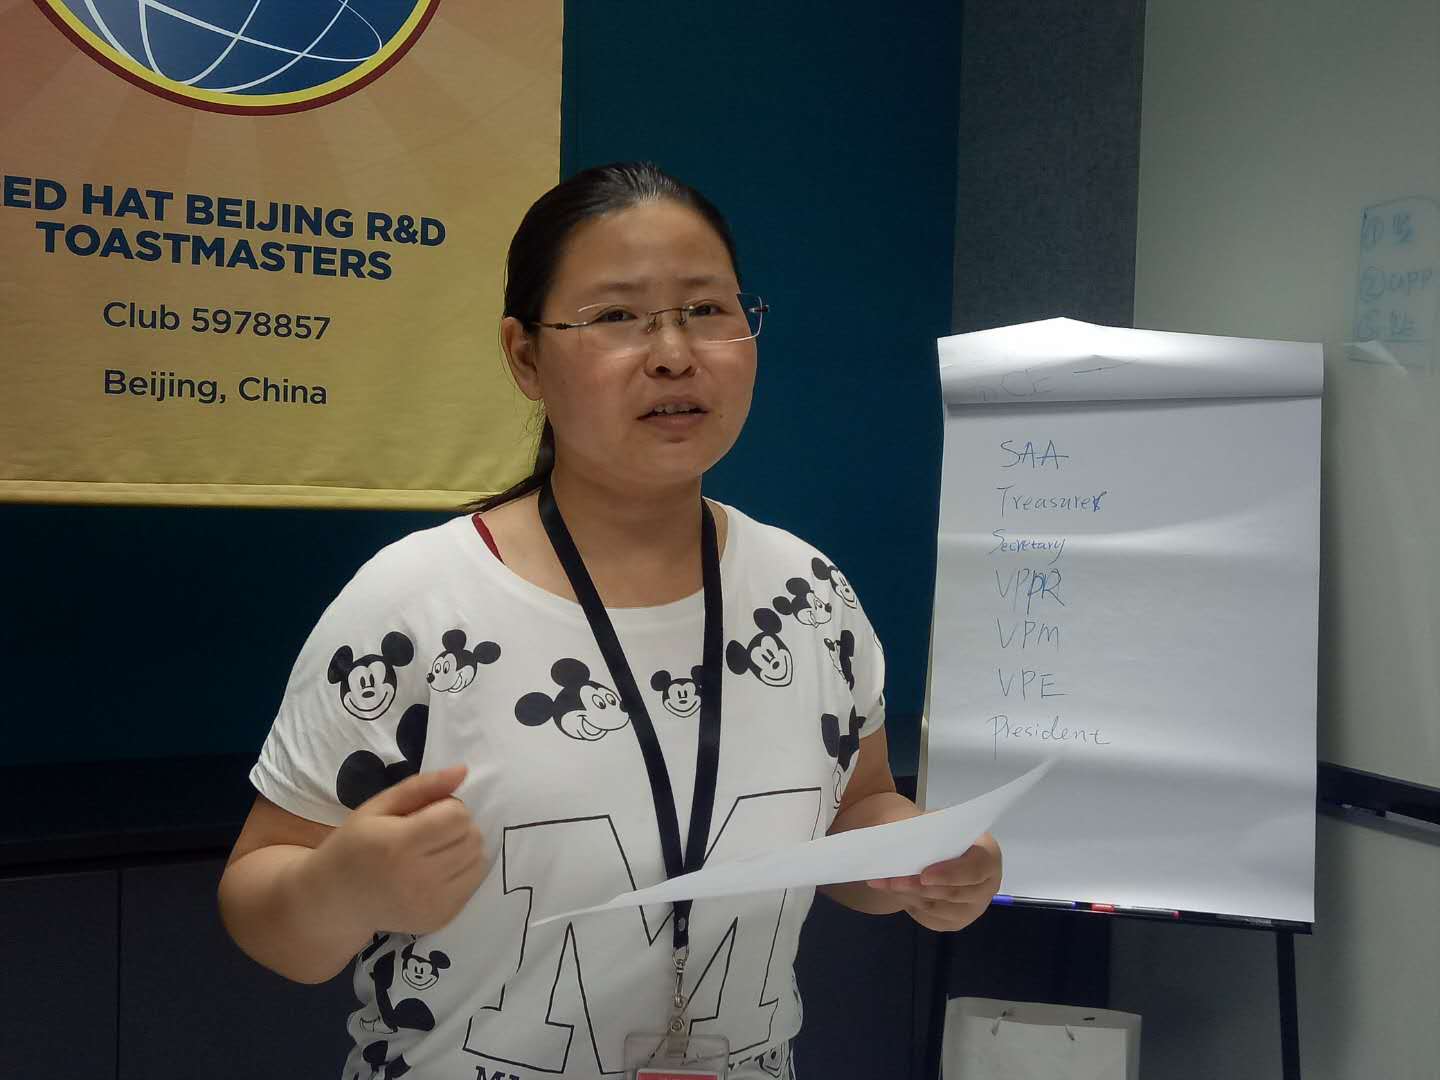 RED HAT BEIJING R&D
TOASTMASTERS
Club 5978857
Beijing, China
SAA
Treasurer
Secretary
VPPR
VPM
VPE
President
M